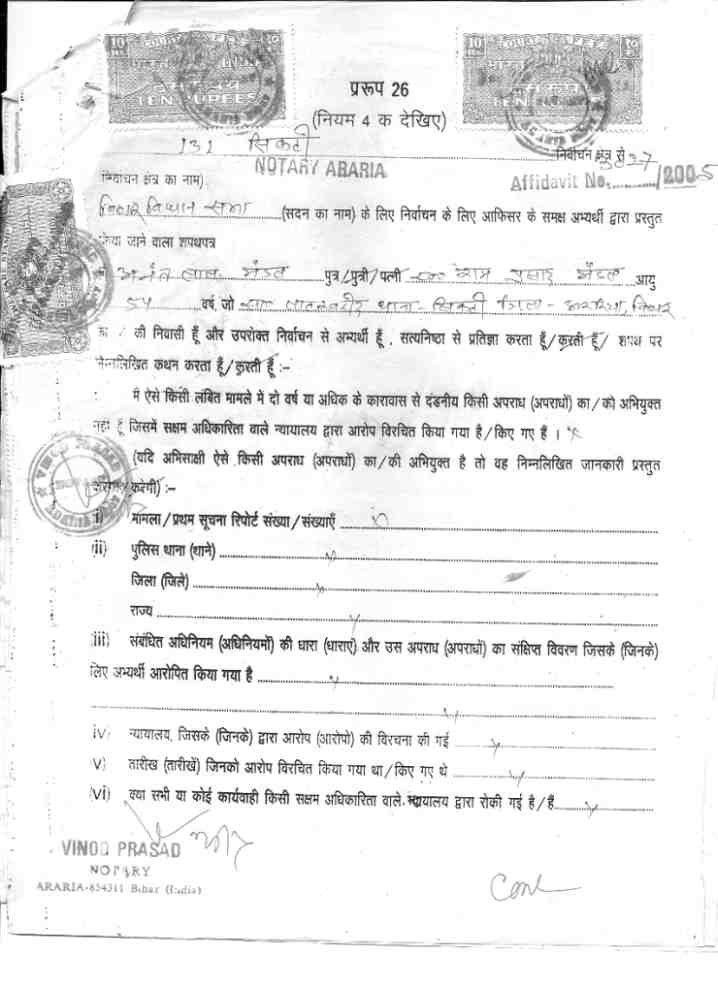 प्ररूप 26
(नियम 4 क देखिए)
131 सिकटी
NOTARY ARARIA
निर्वाचन क्षेत्र से
Affidavit No. /200-5
निर्वाचन क्षेत्र का नाम)
विधान सभा (सदन का नाम) के लिए निर्वाचन के लिए आफिसर के समक्ष अभ्यर्थी द्वारा प्रस्तुत
किया जाने वाला शपथपत्र
लाल मंडल पुत्र/पुत्री/पत्नी राम प्रसाद मंडल आयु
54 वर्ष, जो थाना - सिकटी जिला - अररिया, बिहार
का / की निवासी हूँ और उपरोक्त निर्वाचन से अभ्यर्थी हूँ, सत्यनिष्ठा से प्रतिज्ञा करता हूँ/करती हूँ/ शपथ पर
निम्नलिखित कथन करता हूँ/करती हूँ :–
मैं ऐसे किसी लंबित मामले में दो वर्ष या अधिक के कारावास से दंडनीय किसी अपराध (अपराधों) का/की अभियुक्त
नहीं हूँ जिसमें सक्षम अधिकारिता वाले न्यायालय द्वारा आरोप विरचित किया गया है/किए गए हैं ।
(यदि अभिसाक्षी ऐसे किसी अपराध (अपराधों) का/की अभियुक्त है तो वह निम्नलिखित जानकारी प्रस्तुत
करेगी) :–
i) मामला/प्रथम सूचना रिपोर्ट संख्या/संख्याएँ
(ii) पुलिस थाना (थाने)
जिला (जिले)
राज्य
(iii) संबंधित अधिनियम (अधिनियमों) की धारा (धाराएँ) और उस अपराध (अपराधों) का संक्षिप्त विवरण जिसके (जिनके)
लिए अभ्यर्थी आरोपित किया गया है
iv) न्यायालय, जिसके (जिनके) द्वारा आरोप (आरोपो) की विरचना की गई
v) तारीख (तारीखें) जिनको आरोप विरचित किया गया था/किए गए थे
(vi) क्या सभी या कोई कार्यवाही किसी सक्षम अधिकारिता वाले न्यायालय द्वारा रोकी गई है/हैं
VINOD PRASAD
NOTARY
ARARIA-854311 Bihar (India)